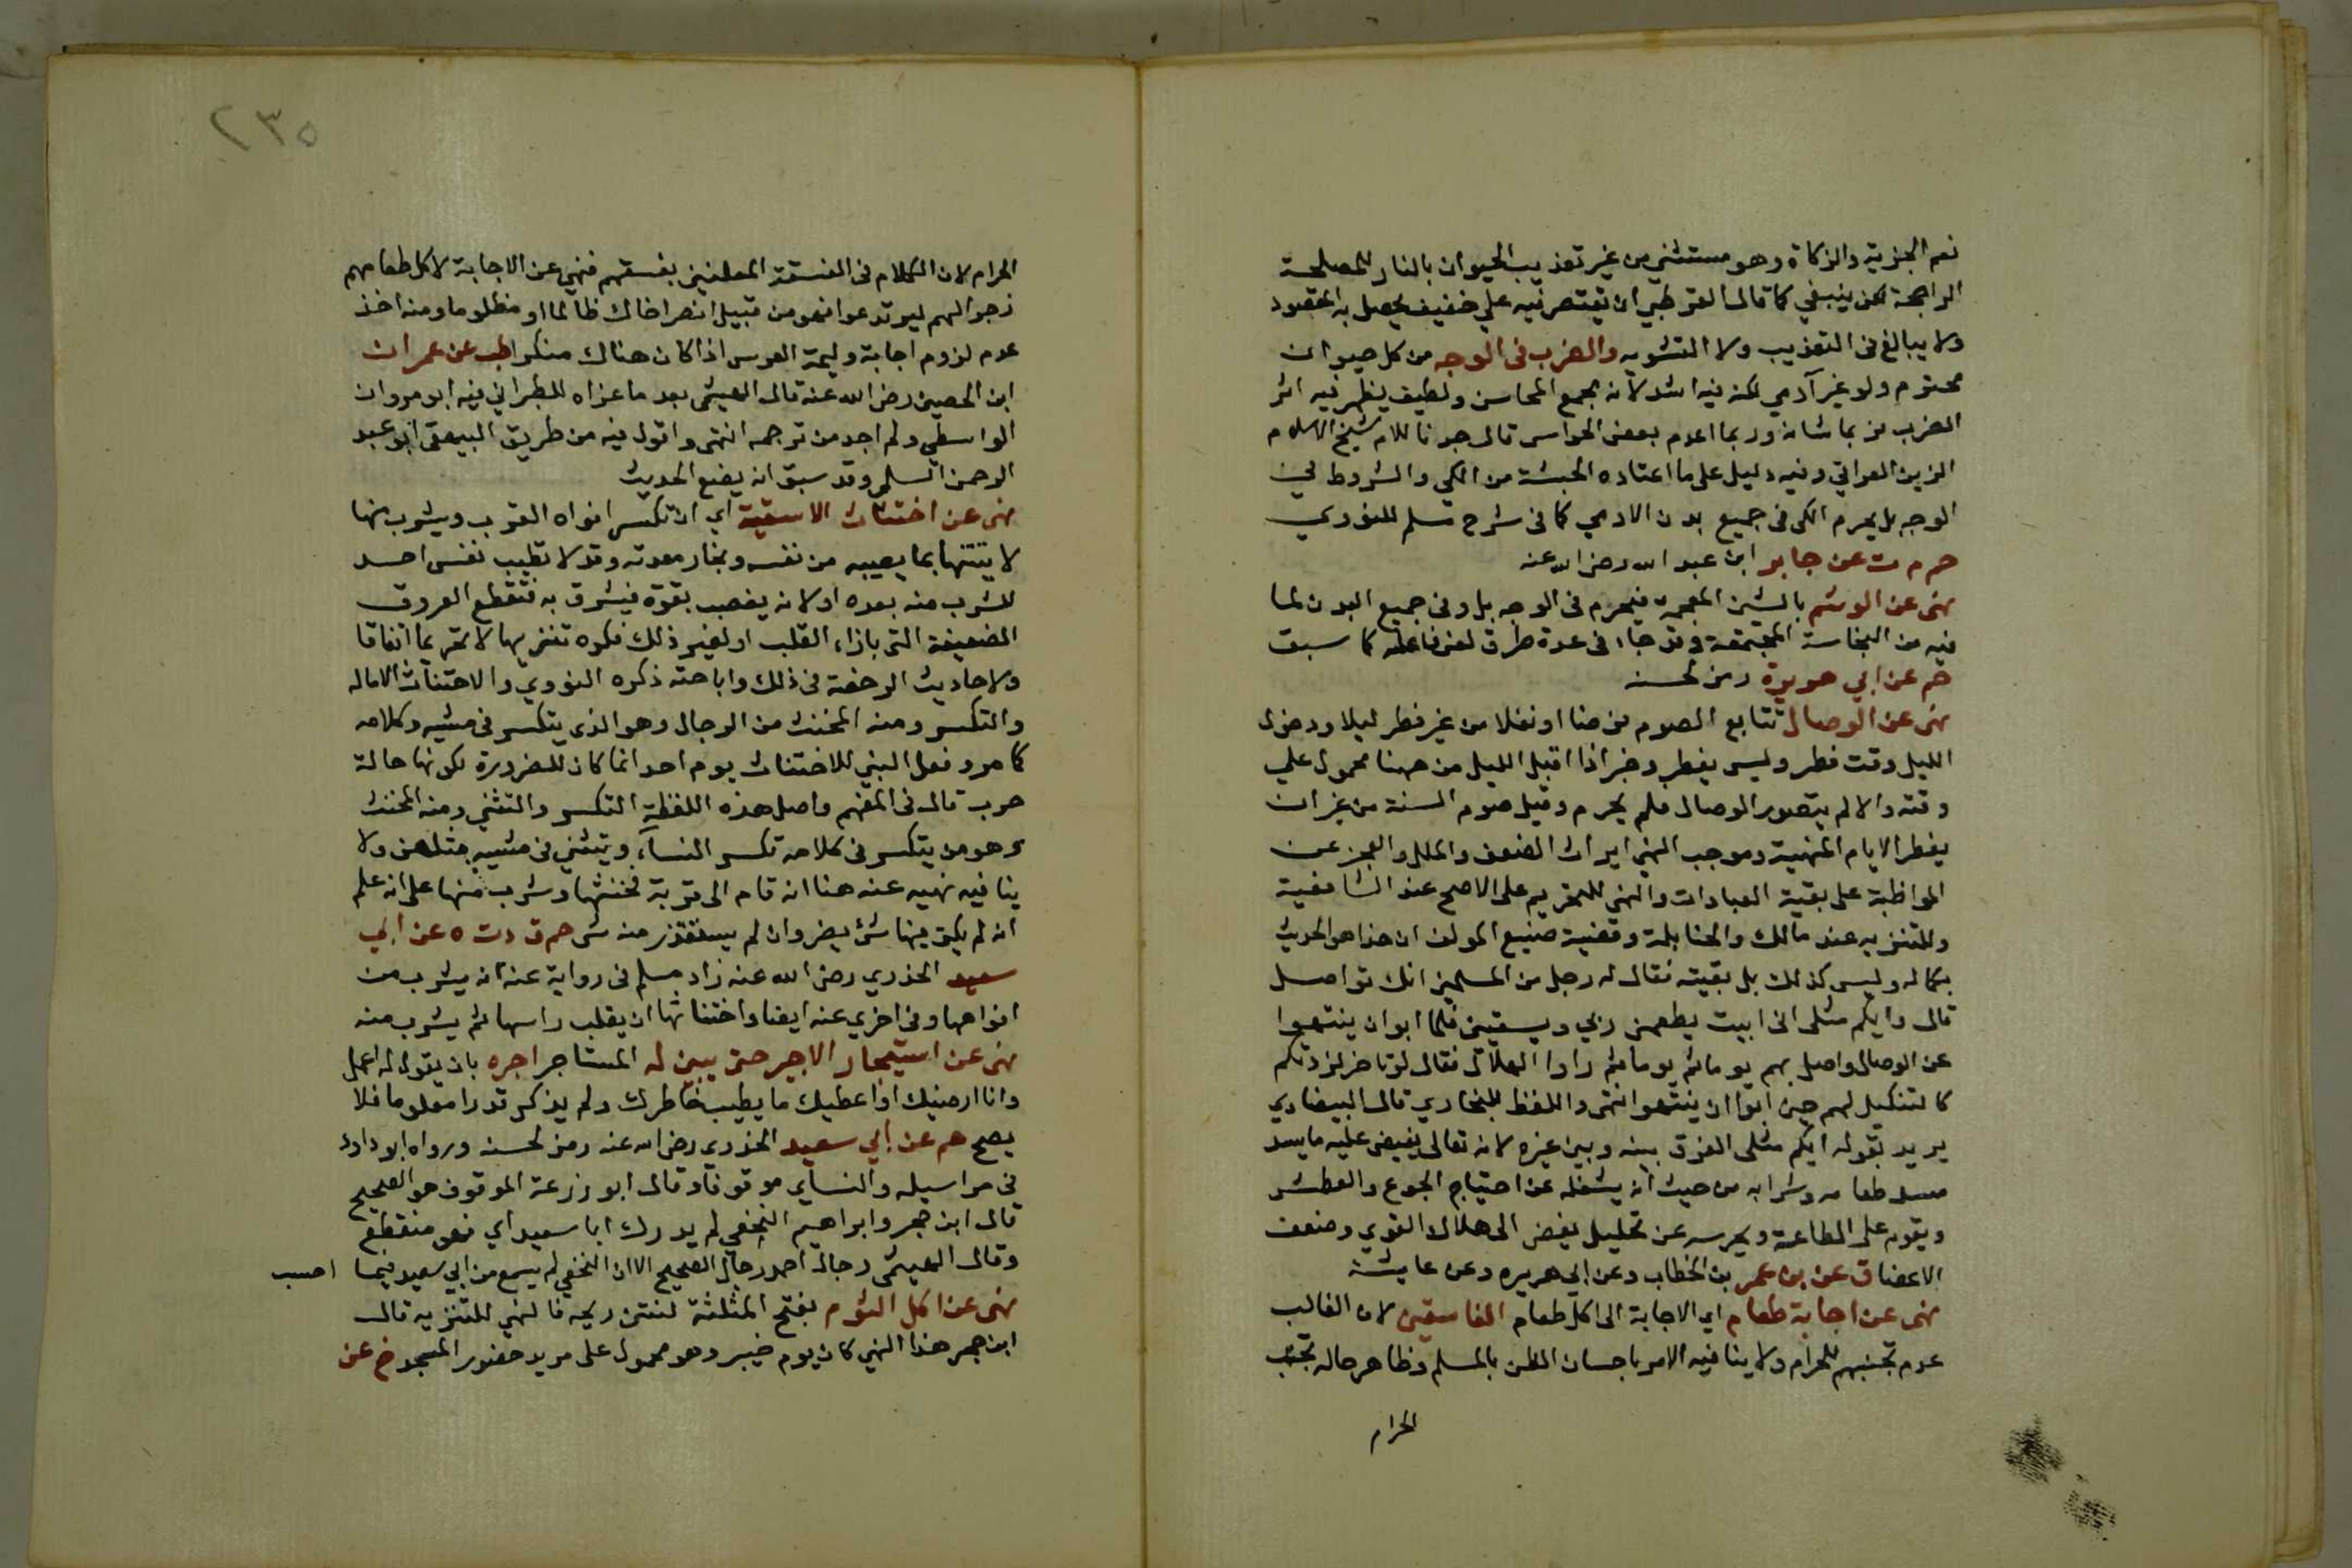 نعم الجزية والزكاة وهو مستثنى من غير تعذيب الحيوان بالنار للمصلحة
الراجحة لكن ينبغي كما قال القرطبي ان يقتصر فيه على خفيف يحصل به المقصود
ولا يبالغ في التعذيب ولا التشويه والضرب في الوجه من كل حيوان
محترم ولو غير آدمي لكنه فيه اشد لانه مجمع المحاسن ولطيف يظهر فيه اثر
الضرب فربما شانه وربما اعدم بعض الحواس قال جدنا للام شيخ الاسلام
الزين العراقي وفيه دليل على ما اعتاده الحبشة من الكي والشروط في
الوجه بل يحرم الكى في جميع بدن الادمي كما في شرح مسلم للنووي
حم م ت عن جابر ابن عبد الله رضي الله عنه
نهى عن الوشم بالشين المعجمة فيحرم في الوجه بل وفي جميع البدن لما
فيه من النجاسة المجتمعة وقد جاء في عدة طرق لعن فاعله كما سبق
حم عن ابي هريرة رمز لحسنه
نهى عن الوصال تتابع الصوم فرضا او نفلا من غير فطر ليلا ودخول
الليل وقت فطر وليس يفطر وخبر اذا اقبل الليل من ههنا محمول على
وقته والا لم يتصور الوصال فلم يحرم وقيل صوم السنة من غير ان
يفطر الايام المنهية وموجب النهي ايراث الضعف والملل والعجز عن
المواظبة على بقية العبادات والنهي للتحريم على الاصح عند الشافعية
وللتنزيه عند مالك والحنابلة وقضية صنيع المولف ان هذا هو الحديث
بكماله وليس كذلك بل بقيته فقال له رجل من المسلمين انك تواصل
قال وايكم مثلى انى ابيت يطعمني ربي ويسقيني فلما ابوا ان ينتهوا
عن الوصال واصل بهم يوما ثم يوما ثم راوا الهلال فقال لو تاخر لزدتكم
كالتنكيل لهم حين ابوا ان ينتهوا انتهى واللفظ للبخاري قال البيضاوي
يريد بقوله ايكم مثلى الفرق بينه وبين غيره لانه تعالى يفيض عليه ما يسد
مسد طعامه وشرابه من حيث انه يشغله عن احتياج الجوع والعطش
ويقويه على الطاعة ويحرسه عن تحليل يفضى الى هلال القوي وضعف
الاعضا ق عن بن عمر بن الخطاب وعن ابي هريره وعن عايشة
نهى عن اجابة طعام اي الاجابة الى اكل طعام الفاسقين لان الغالب
عدم تجنبهم للحرام ولا ينافيه الامر باحسان الظن بالمسلم وظاهر حاله تجنب
الحرام
٢٣٥
الحرام لان الكلام في الفسقة المعلنين بفسقهم فنهي عن الاجابة لاكل طعامهم
زجرا لهم ليرتدعوا فهو من قبيل انصر اخاك ظالما او مظلوما ومنه اخذ
عدم لزوم اجابة وليمة العرس اذا كان هناك منكر طب عن عمران
ابن الحصين رضي الله عنه قال الهيثمى بعد ما عزاه للطبراني فيه ابو مروان
الواسطي ولم اجد من ترجمه انتهى واقول فيه من طريق البيهقى ابو عبد
الرحمن السلمى وقد سبق انه يضع الحديث
نهى عن اختناث الاسقية اي ان تكسر افواه القرب ويشرب منها
لانه ينتنها بما يصيبه من نفسه وبخار معدته وقد لا تطيب نفس احد
للشرب منه بعده او لانه يغصب بقوة فيشرق به فتقطع العروق
الضعيفة التى بازاء القلب او لغير ذلك فكره تنزيها لا تحريما اتفاقا
ولاحاديث الرخصة في ذلك واباحته ذكره النووي والاختناث الاماله
والتكسر ومنه المخنث من الرجال وهو الذى يتكسر في مشيه وكلامه
كما مر وفعل النبي للاختناث يوم احد انما كان للضرورة لكونها حالة
حرب قال في المفهم واصل هذه اللفظة التكسر والتثني ومنه المخنث
وهو من يتكسر في كلامه تكسر النساء ويتثني في مشيه مثلهن ولا
ينافيه نهيه عنه هنا انه قام الى قربة فخنثها وشرب منها على انه علم
انه لم يكن فيها شئ يضر وان لم يستقذر منه شى حم ق د ت ه عن ابي
سعيد الخدري رضي الله عنه زاد مسلم في رواية عنه انه يشرب من
افواهها وفي اخري عنه ايضا واختناثها ان يقلب راسها ثم يشرب منه
نهى عن استيجار الاجير حتى يبين له المستاجر اجره بان يقول له اعمل
وانا ارضيك او اعطيك ما يطيب خاطرك ولم يذكر قدرا معلوما فلا
يصح حم عن ابي سعيد الخدرى رضي الله عنه رمز لحسنه ورواه ابو داود
في مراسيله والنساي موقوفا وقال ابو زرعة الموقوف هو الصحيح
قال ابن حجر وابراهيم النخعي لم يدرك ابا سعيد اي فهو منقطع
وقال الهيثمى رجال احمد رجال الصحيح الا ان النخعي لم يسمع من ابي سعيد فيما احسب
نهى عن اكل الثوم بفتح المثلثة لنتن ريحه فالنهي للتنزيه قال
ابن حجر هذا النهي كان يوم خيبر وهو محمول على مريد حضور المسجد خ عن